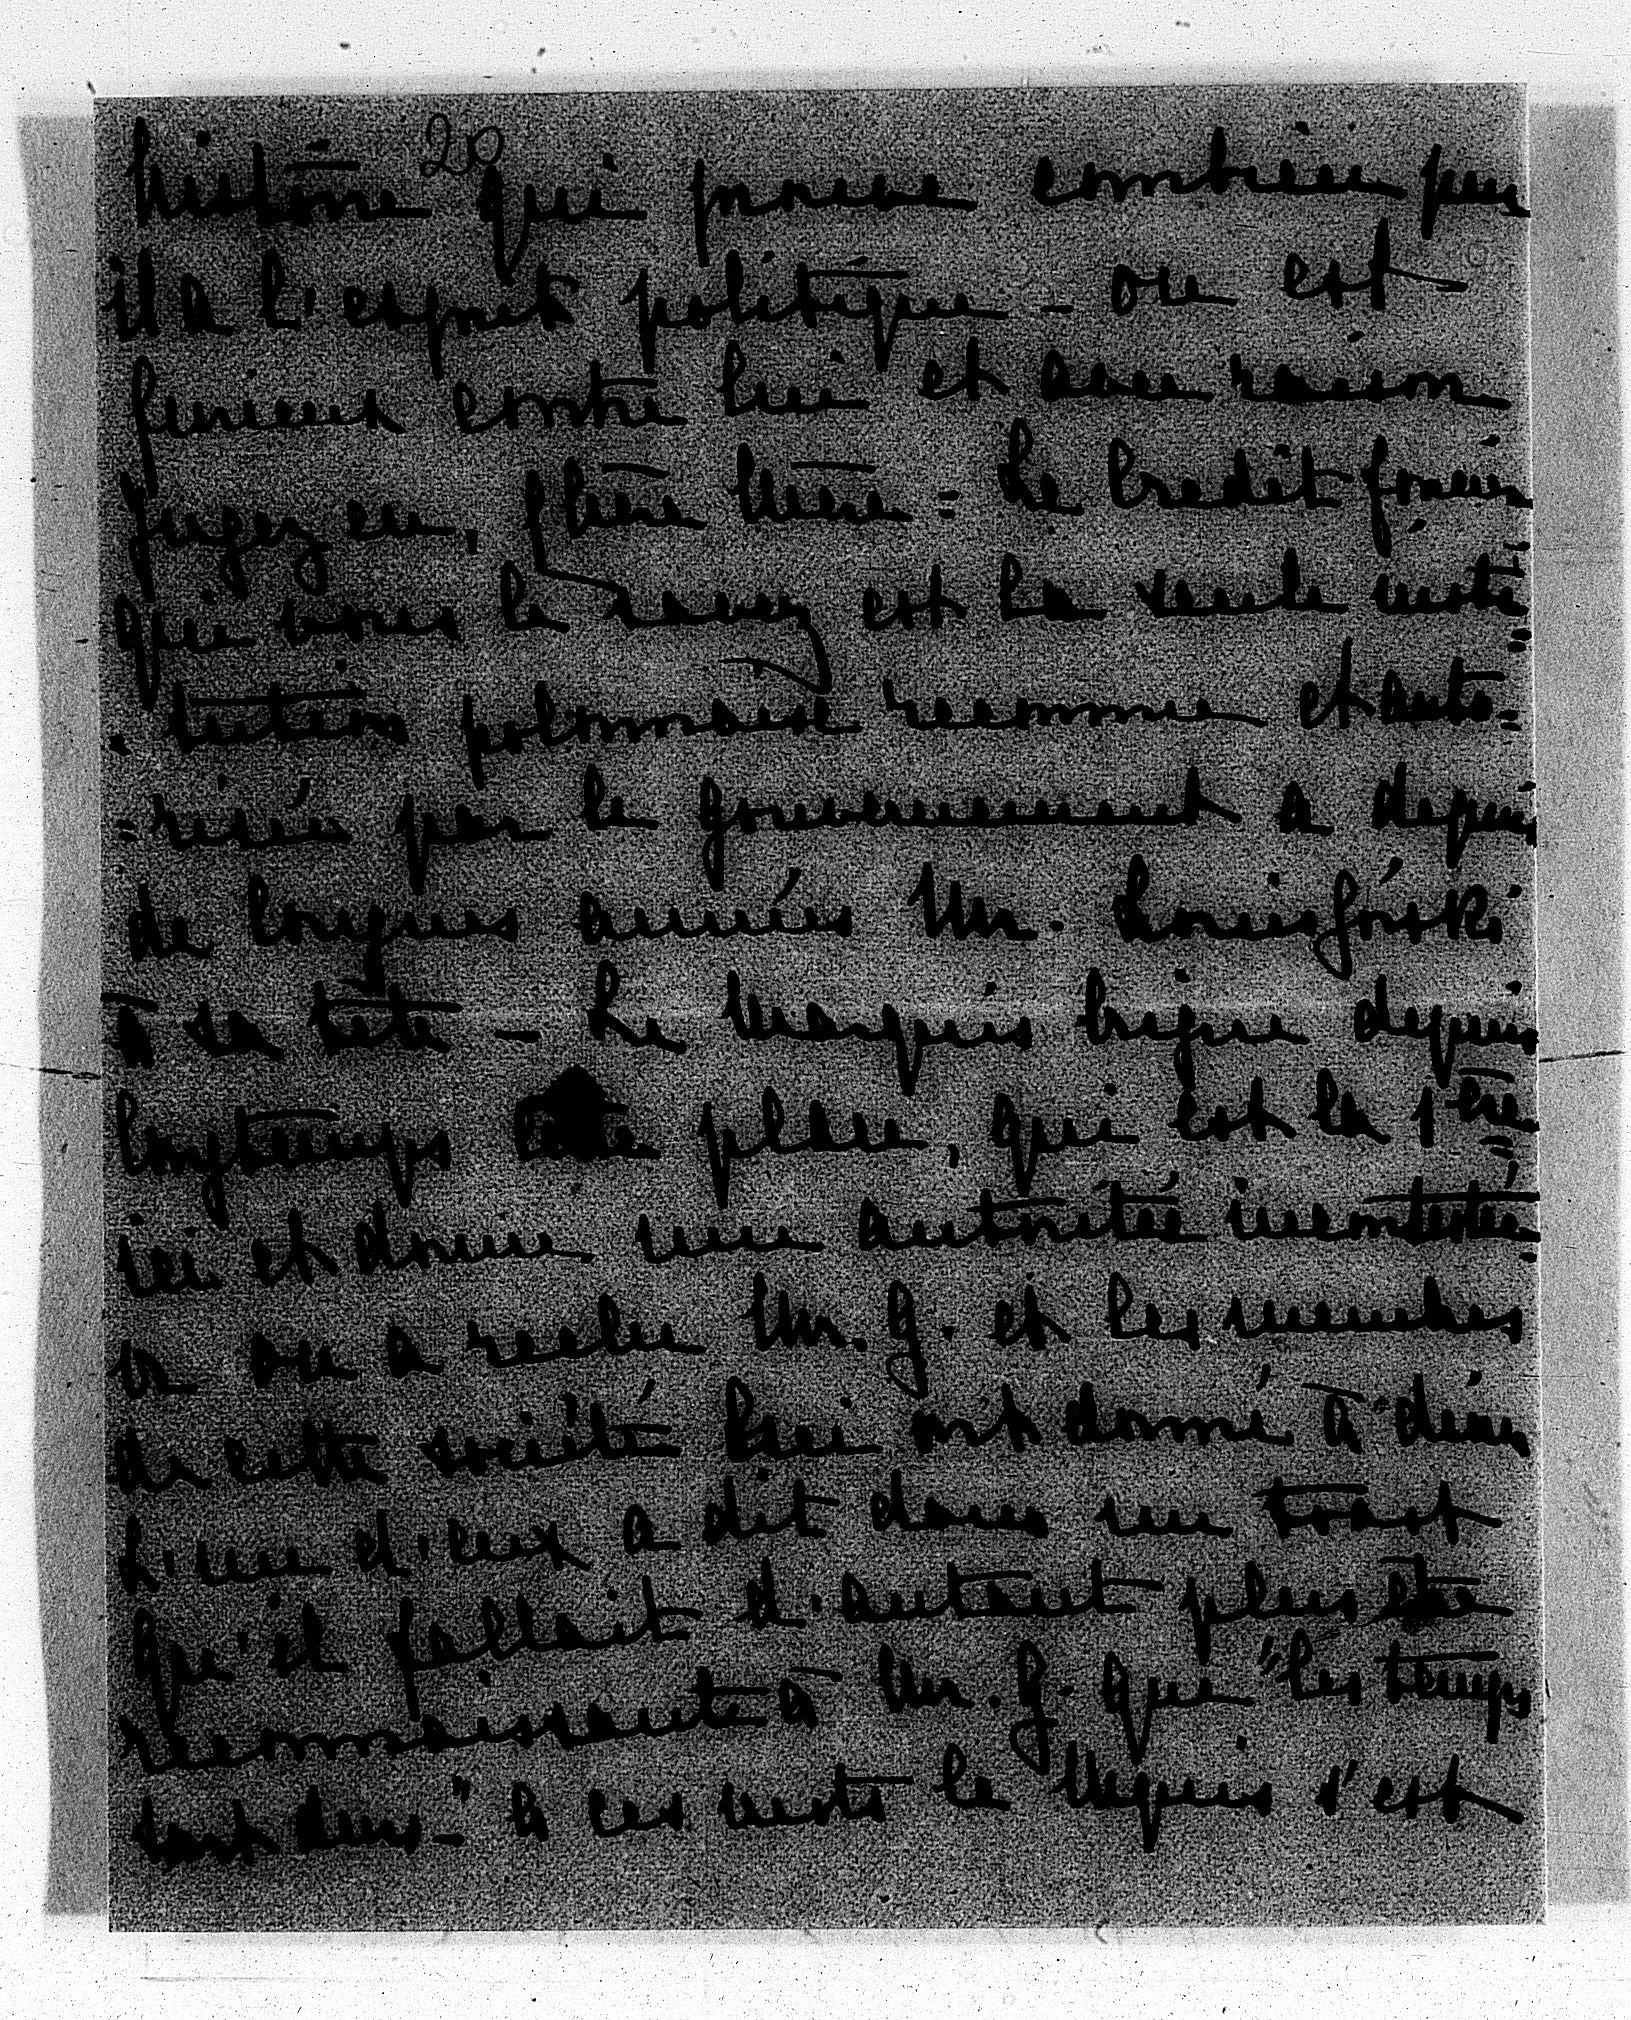 20
histoire qui prouve combien peu
il a l'esprit politique – on est
furieux contre lui et avec raison
jugez en, chère Mère = Le Credit foncier
qui vous le savez est la seule insti=
=tution polonnaise reconnue et auto=
=risée par le gouvernement a depuis
de longues années Mr. Louis Górski
à sa tête – Le Marquis brigue depuis
longtemps cette place, qui est la 1ère
ici et donne une autorité incontestée
or on a reelu Mr. G. et les membres
de cette société lui ont donné à diner
L'un d'eux a dit dans un toast
qu'il fallait d'autant plus être
reconnaissant à Mr. G. que "les temps
sont durs –" à ces mots le Mquis s'est